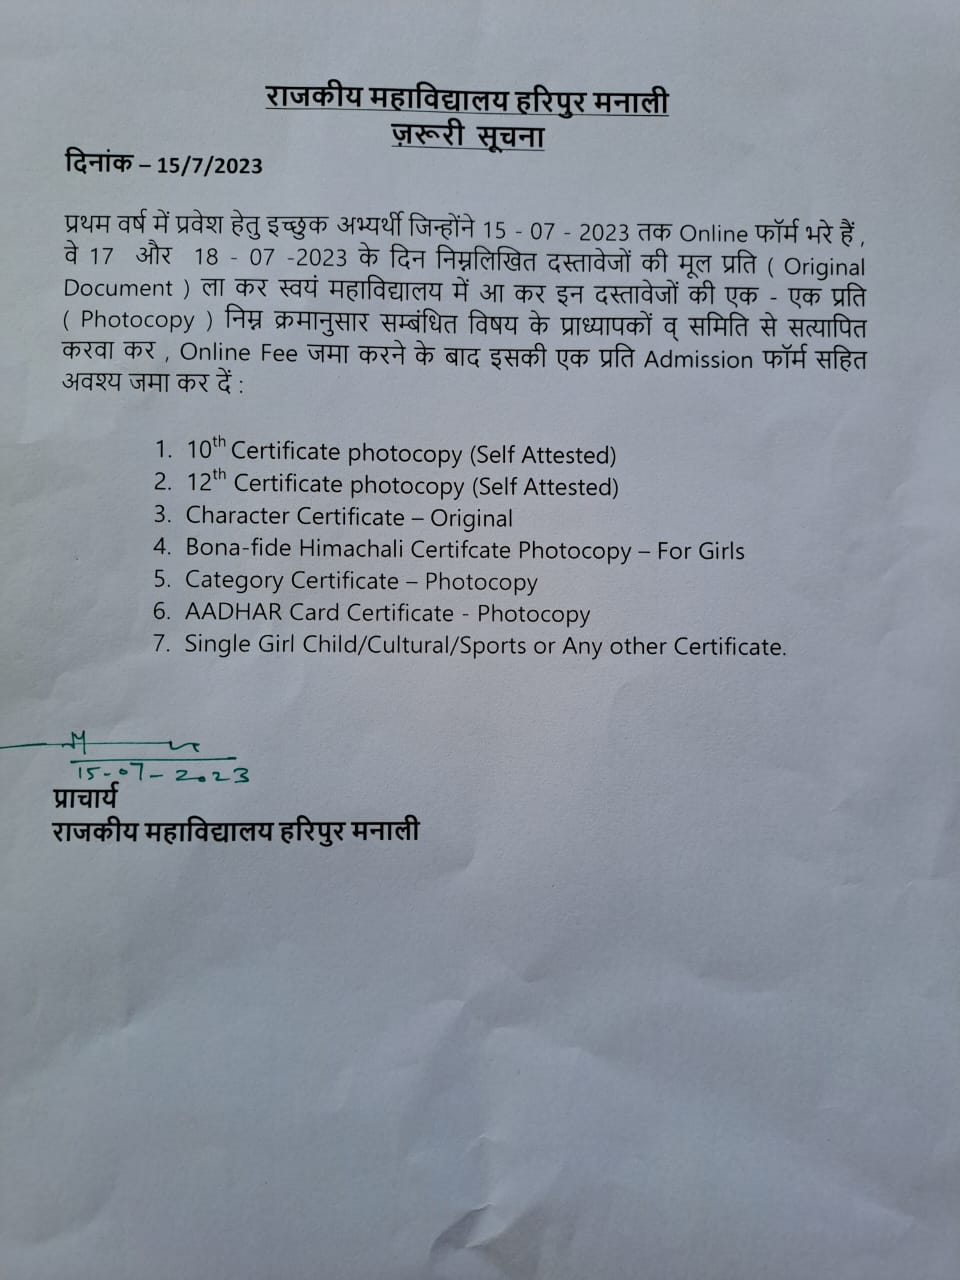 राजकीय महाविद्यालय हरिपुर मनाली
ज़रूरी सूचना
दिनांक – 15/7/2023
प्रथम वर्ष में प्रवेश हेतु इच्छुक अभ्यर्थी जिन्होंने 15 - 07 - 2023 तक Online फॉर्म भरे हैं ,
वे 17 और 18 - 07 -2023 के दिन निम्नलिखित दस्तावेजों की मूल प्रति ( Original
Document ) ला कर स्वयं महाविद्यालय में आ कर इन दस्तावेजों की एक - एक प्रति
( Photocopy ) निम्न क्रमानुसार सम्बंधित विषय के प्राध्यापकों व् समिति से सत्यापित
करवा कर , Online Fee जमा करने के बाद इसकी एक प्रति Admission फॉर्म सहित
अवश्य जमा कर दें :
1. 10th Certificate photocopy (Self Attested)
2. 12th Certificate photocopy (Self Attested)
3. Character Certificate – Original
4. Bona-fide Himachali Certifcate Photocopy – For Girls
5. Category Certificate – Photocopy
6. AADHAR Card Certificate - Photocopy
7. Single Girl Child/Cultural/Sports or Any other Certificate.
15-07-2023
प्राचार्य
राजकीय महाविद्यालय हरिपुर मनाली